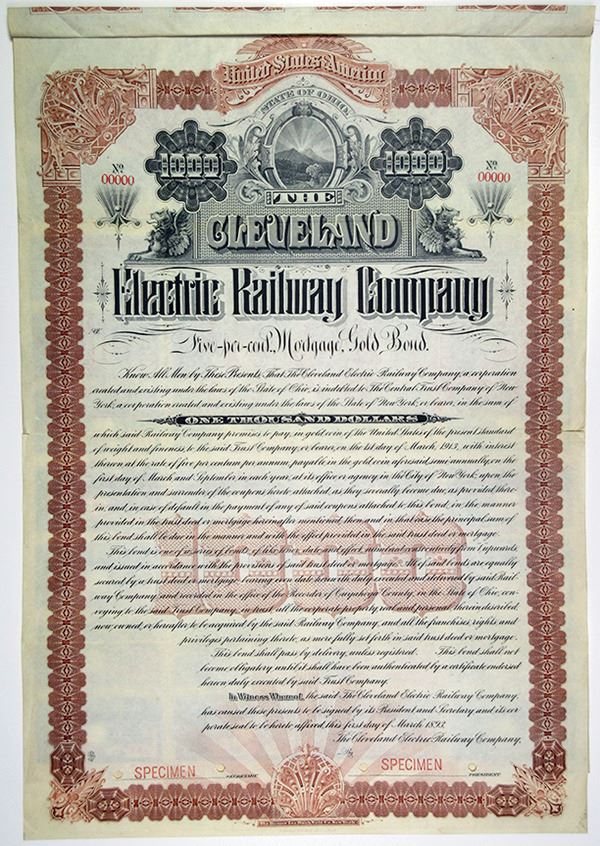 United States America
STATE OF OHIO.
1000 1000
No. 00000
No. 00000
THE
CLEVELAND
Electric Railway Company
Five-per-cent. Mortgage Gold Bond.
Know All Men by These Presents, That The Cleveland Electric Railway Company, a corporation
created and existing under the laws of the State of Ohio, is indebted to The Central Trust Company of New
York, a corporation created and existing under the laws of the State of New York, or bearer, in the sum of
ONE THOUSAND DOLLARS
which said Railway Company promises to pay, in gold coin of the United States of the present standard
of weight and fineness, to the said Trust Company, or bearer, on the 1st day of March, 1913, with interest
thereon at the rate of five per centum per annum, payable in the gold coin aforesaid, semi-annually, on the
first day of March and September in each year, at its office or agency in the City of New York, upon the
presentation and surrender of the coupons hereto attached, as they severally become due, as provided there-
in, and, in case of default in the payment of any of said coupons attached to this bond, in the manner
provided in the trust deed or mortgage hereinafter mentioned, then and in that case the principal sum of
this bond shall be due in the manner and with the effect provided in the said trust deed or mortgage.
This bond is one of a series of bonds of like tenor, date and effect, numbered consecutively from 1 upwards,
and issued in accordance with the provisions of said trust deed or mortgage. All of said bonds are equally
secured by a trust deed or mortgage bearing even date herewith, executed and delivered by said Rail-
way Company, and recorded in the office of the Recorder of Cuyahoga County, in the State of Ohio, con-
veying to the said Trust Company, in trust, all the corporate property, real and personal therein described,
now owned, or hereafter to be acquired by the said Railway Company, and all the franchises, rights and
privileges pertaining thereto, as more fully set forth in said trust deed or mortgage.
This bond shall pass by delivery, unless registered. This bond shall not
become obligatory until it shall have been authenticated by a certificate endorsed
hereon duly executed by said Trust Company.
In Witness Whereof, the said The Cleveland Electric Railway Company,
has caused these presents to be signed by its President and Secretary, and its cor-
porate seal to be hereto affixed, this first day of March 1893.
The Cleveland Electric Railway Company,
By
SPECIMEN SECRETARY.
SPECIMEN PRESIDENT.
1000